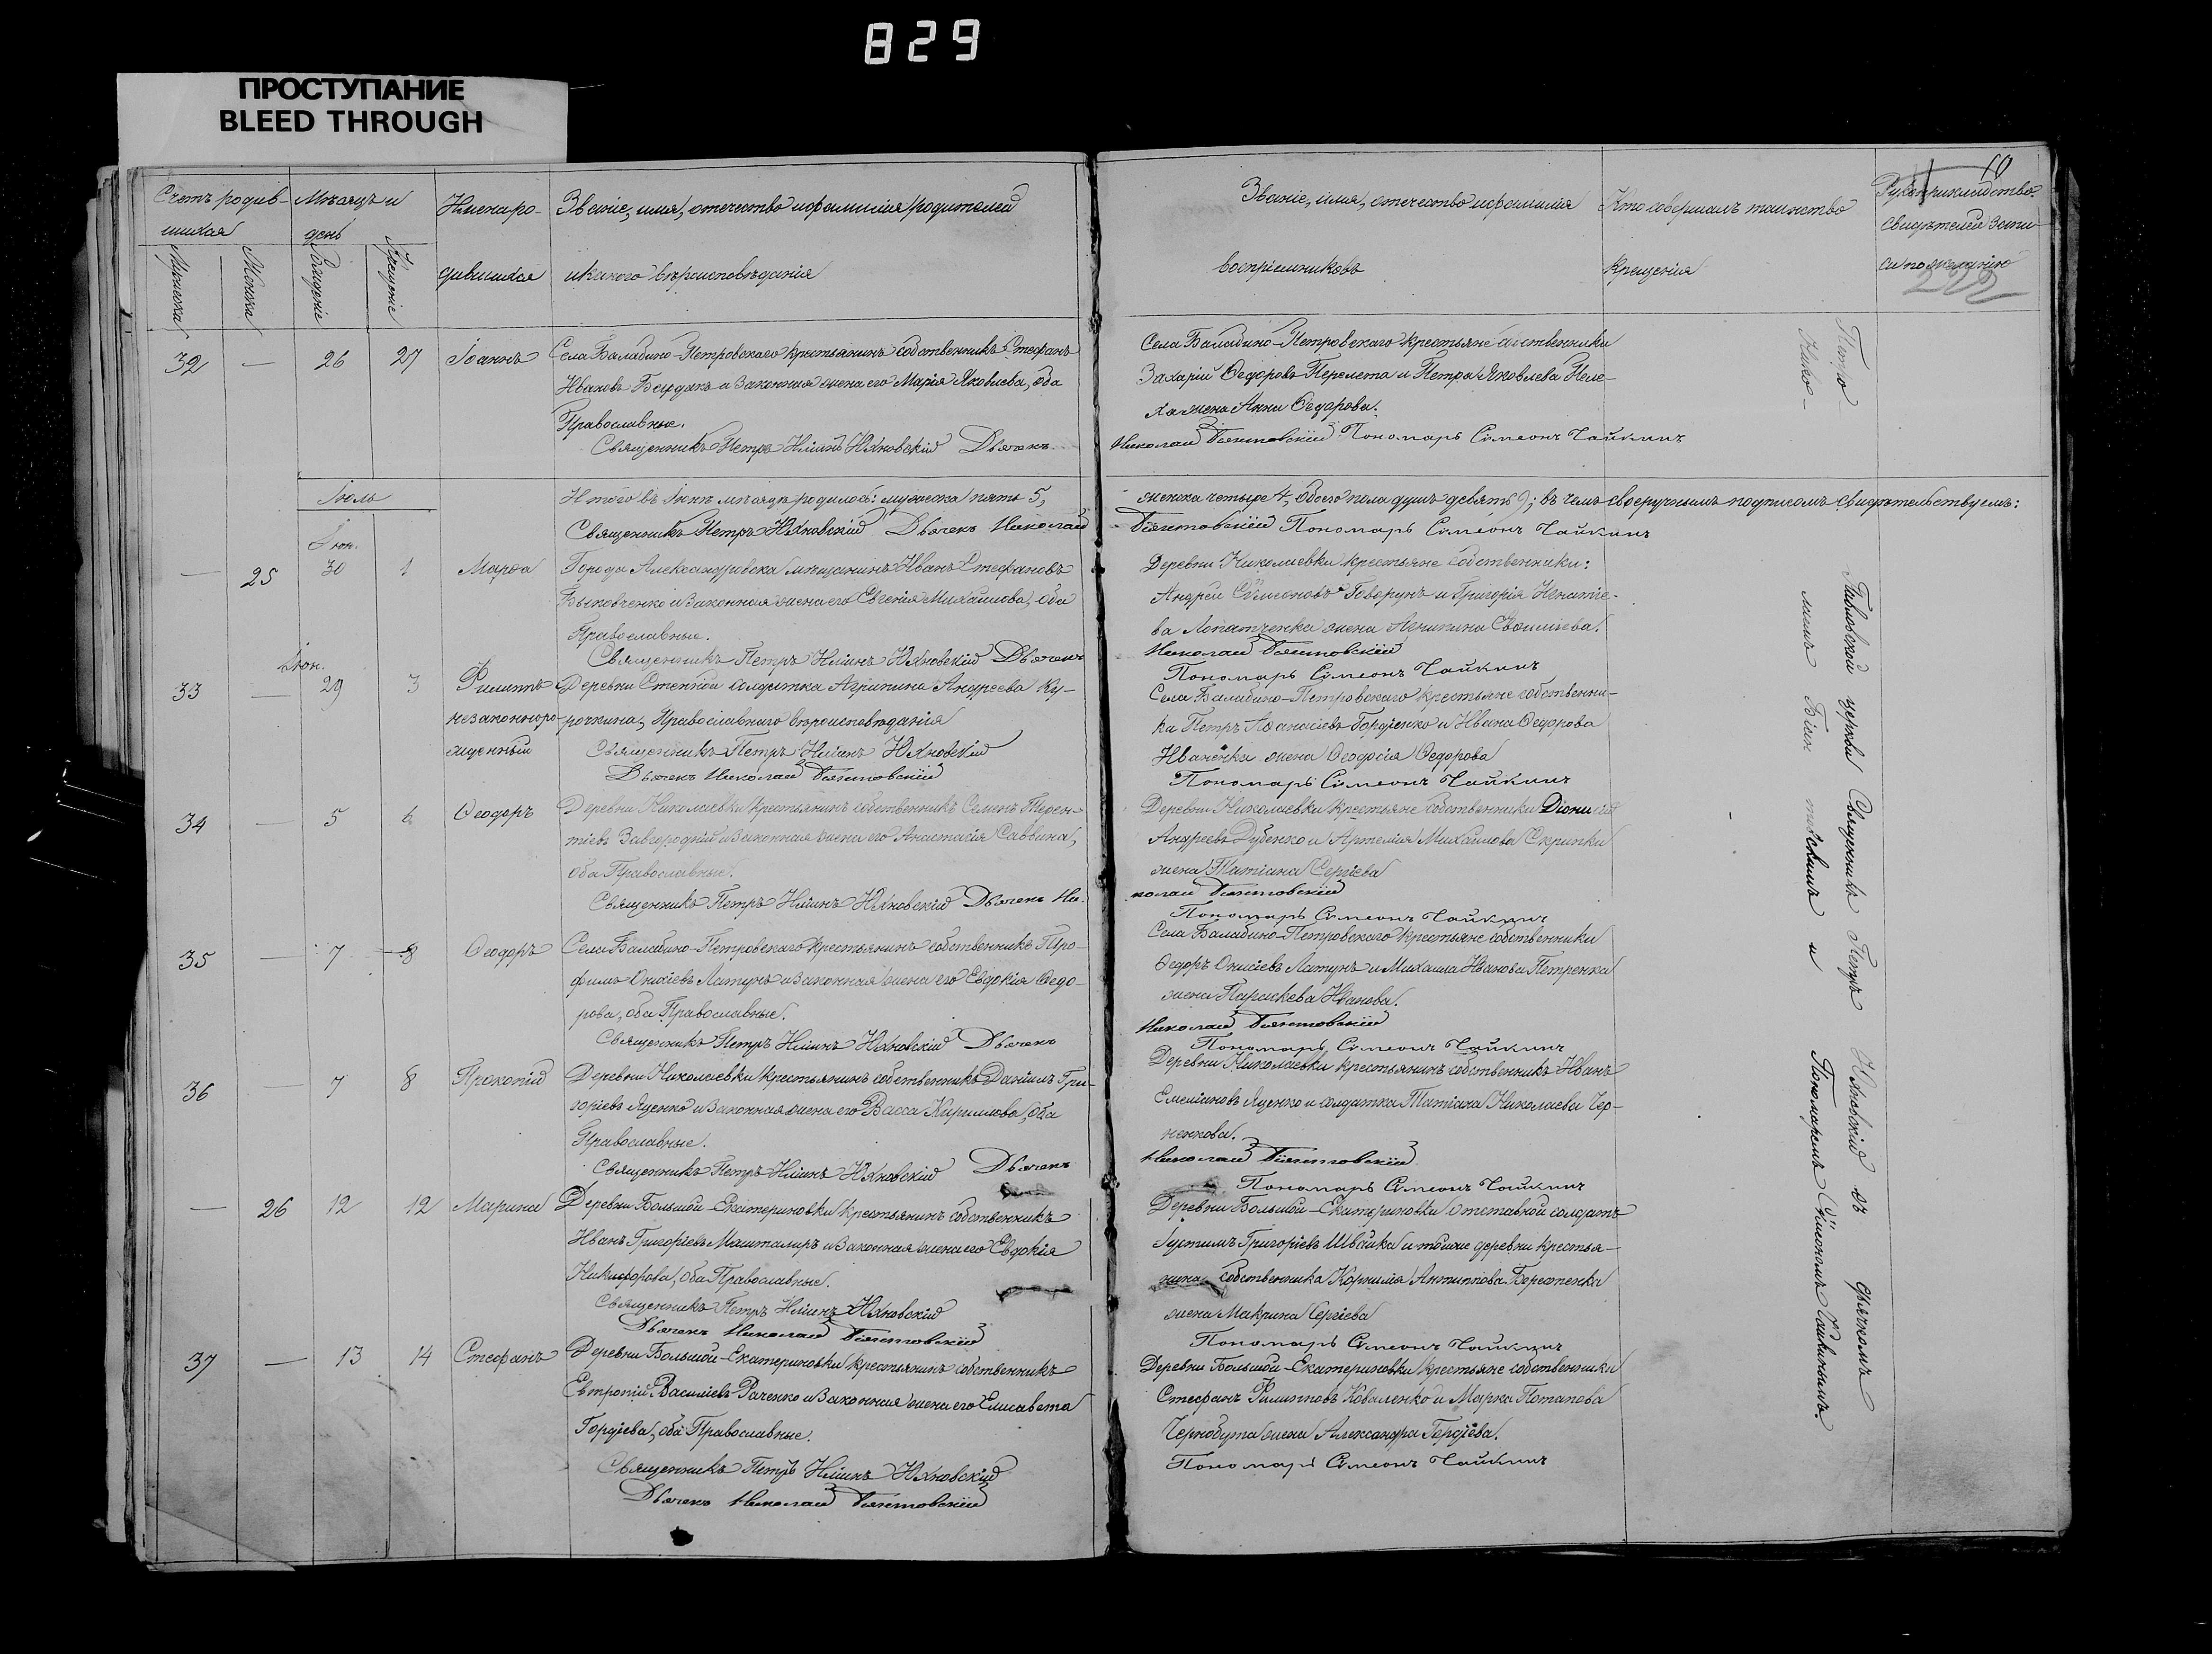 829
ПРОСТУПАНИЕ
BLEED THROUGH
10
Счетъ родив-
шихся
Мѣсяцъ и
день
Имена ро-
дившихся
Званіе, имя, отчество и фамилія родителей
и какого вѣроисповѣданія
Званіе, имя, отчество и фамилія
воспріемниковъ
Кто совершалъ таинство
крещенія
Рукоприкладство
свидѣтелей запи-
си по желанію
222
Мужеска
Женска
Рожденіе
Крещеніе
32 — 26 27 Іоаннъ Села Балабино-Петровскаго крестьянинъ собственникъ Стефанъ
Ивановъ Бердакъ и законная жена его Марія Яковлева, оба
Православные.
Священникъ Петръ Юхновскій Дьячекъ
Села Балабино-Петровскаго крестьяне собственники
Захарій Ѳедоровъ Перелета и Петра Яковлева Неле-
ха жена Анна Ѳедорова.
Николай Пономарь Сѵмеонъ Чайкинъ
Іюль
Итого въ Іюнѣ мѣсяцѣ родилось: мужеска пять 5,
женска четыре 4, обоего пола душъ девять 9; въ чемъ своеручнымъ подписомъ свидѣтельствуемъ:
Священникъ Петръ Юхновскій Дьячекъ Николай
Пономарь Сѵмеонъ Чайкинъ
Іюн.
— 25 30 1 Марѳа Города Александровска мѣщанинъ Иванъ Стефановъ
Быковченко и законная жена его Евгенія Михайлова, оба
Православные.
Священникъ Петръ Юхновскій Дьячекъ
Деревни Николаевки крестьяне собственники:
Андрей Сѵмеоновъ Говорунъ и Григорія Игнатіе-
ва Лопатченка жена Агрипина Василіева.
Николай
Пономарь Сѵмеонъ Чайкинъ
Іюн.
33 — 29 3 Филиппъ Деревни Степной солдатка Агрипина Андреева Ку-
незаконноро- рочкина, Православнаго вѣроисповѣданія
жденный Священникъ Петръ Юхновскій
Дьячекъ Николай
Села Балабино-Петровскаго крестьяне собственни-
ки Петръ Аѳанасіевъ Гордіенко и Ивана Ѳедорова
Иваненка жена Ѳеодосія Ѳедорова
Пономарь Сѵмеонъ Чайкинъ
34 — 5 6 Ѳеодоръ Деревни Николаевки крестьянинъ собственникъ Семенъ Терен-
тіевъ Завгородній и законная жена его Анастасія Саввина,
оба Православные.
Священникъ Петръ Юхновскій Дьячекъ Ни-
Деревни Николаевки крестьяне собственники Діонисій
Андреевъ Дубенко и Артемія Михайлова Скрипки
жена Татіана Сергіева
колай
Пономарь Сѵмеонъ Чайкинъ
35 — 7 8 Ѳеодоръ Села Балабино-Петровскаго крестьянинъ собственникъ Тро-
фимъ Онисіевъ Латунъ и законная жена его Евдокія Ѳедо-
рова, оба Православные.
Священникъ Петръ Юхновскій Дьячекъ
Села Балабино-Петровскаго крестьяне собственники
Ѳедоръ Онисіевъ Латунъ и Михаила Иванова Петренка
жена Параскева Иванова.
Николай
Пономарь Сѵмеонъ Чайкинъ
36 — 7 8 Прокопій Деревни Николаевки крестьянинъ собственникъ Даніилъ Гри-
горіевъ Яценко и законная жена его Васса Кирилова, оба
Православные.
Священникъ Петръ Юхновскій Дьячекъ
Деревни Николаевки крестьянинъ собственникъ Иванъ
Емеліановъ Яценко и солдатка Татіана Николаева Чер-
ненкова.
Николай
Пономарь Сѵмеонъ Чайкинъ
— 26 12 12 Марина Деревни Большой-Екатериновки крестьянинъ собственникъ
Иванъ Григоріевъ Машталиръ и законная жена его Евдокія
Никифорова, оба Православные.
Священникъ Петръ Юхновскій
Дьячекъ Николай
Деревни Большой-Екатериновки отставной солдатъ
Густимъ Григоріевъ Швайка и тойже деревни крестья-
нина собственника Корнилія Антипова жена Макрина Сергіева
Пономарь Сѵмеонъ Чайкинъ
37 — 13 14 Стефанъ Деревни Большой-Екатериновки крестьянинъ собственникъ
Евтропій Василіевъ Раченко и законная жена его Елисавета
Гордіева, оба Православные.
Священникъ Петръ Юхновскій
Дьячекъ Николай
Деревни Большой-Екатериновки крестьяне собственники
Стефанъ Филипповъ Коваленко и Марка Потапова
Чернобута жена Александра Гордіева.
Пономарь Сѵмеонъ Чайкинъ
церкви Священникъ Петръ Юхновскій съ дьячкомъ
и Пономаремъ Сѵмеономъ Чайкинымъ.